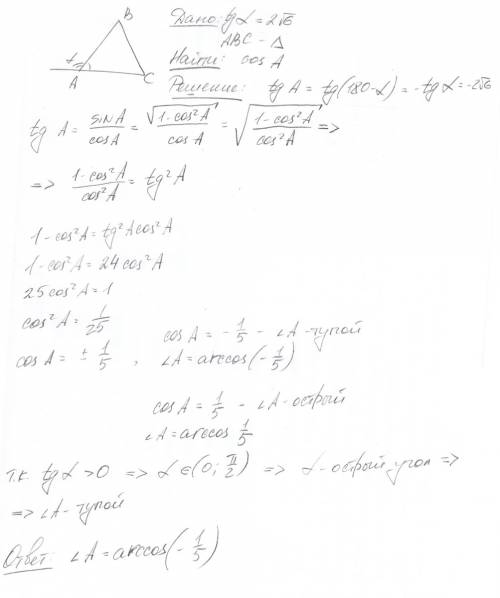 B
Дано: tg α = 2√6
ABC - Δ
Найти: cos A
A
C
Решение: tg A = tg(180-α) = -tg α = -2√6
tg A = sin A / cos A = √(1-cos²A) / cos A = √((1-cos²A) / cos²A) =>
=> (1-cos²A) / cos²A = tg²A
1-cos²A = tg²A cos²A
1-cos²A = 24cos²A
25cos²A = 1
cos²A = 1/25
cos A = ± 1/5 ,
cos A = -1/5 - ∠A - тупой
∠A = arccos(-1/5)
cos A = 1/5 - ∠A - острый
∠A = arccos 1/5
т.к. tg α > 0 => α ∈ (0; π/2) => α - острый угол =>
=> ∠A - тупой
Ответ: ∠A = arccos(-1/5)